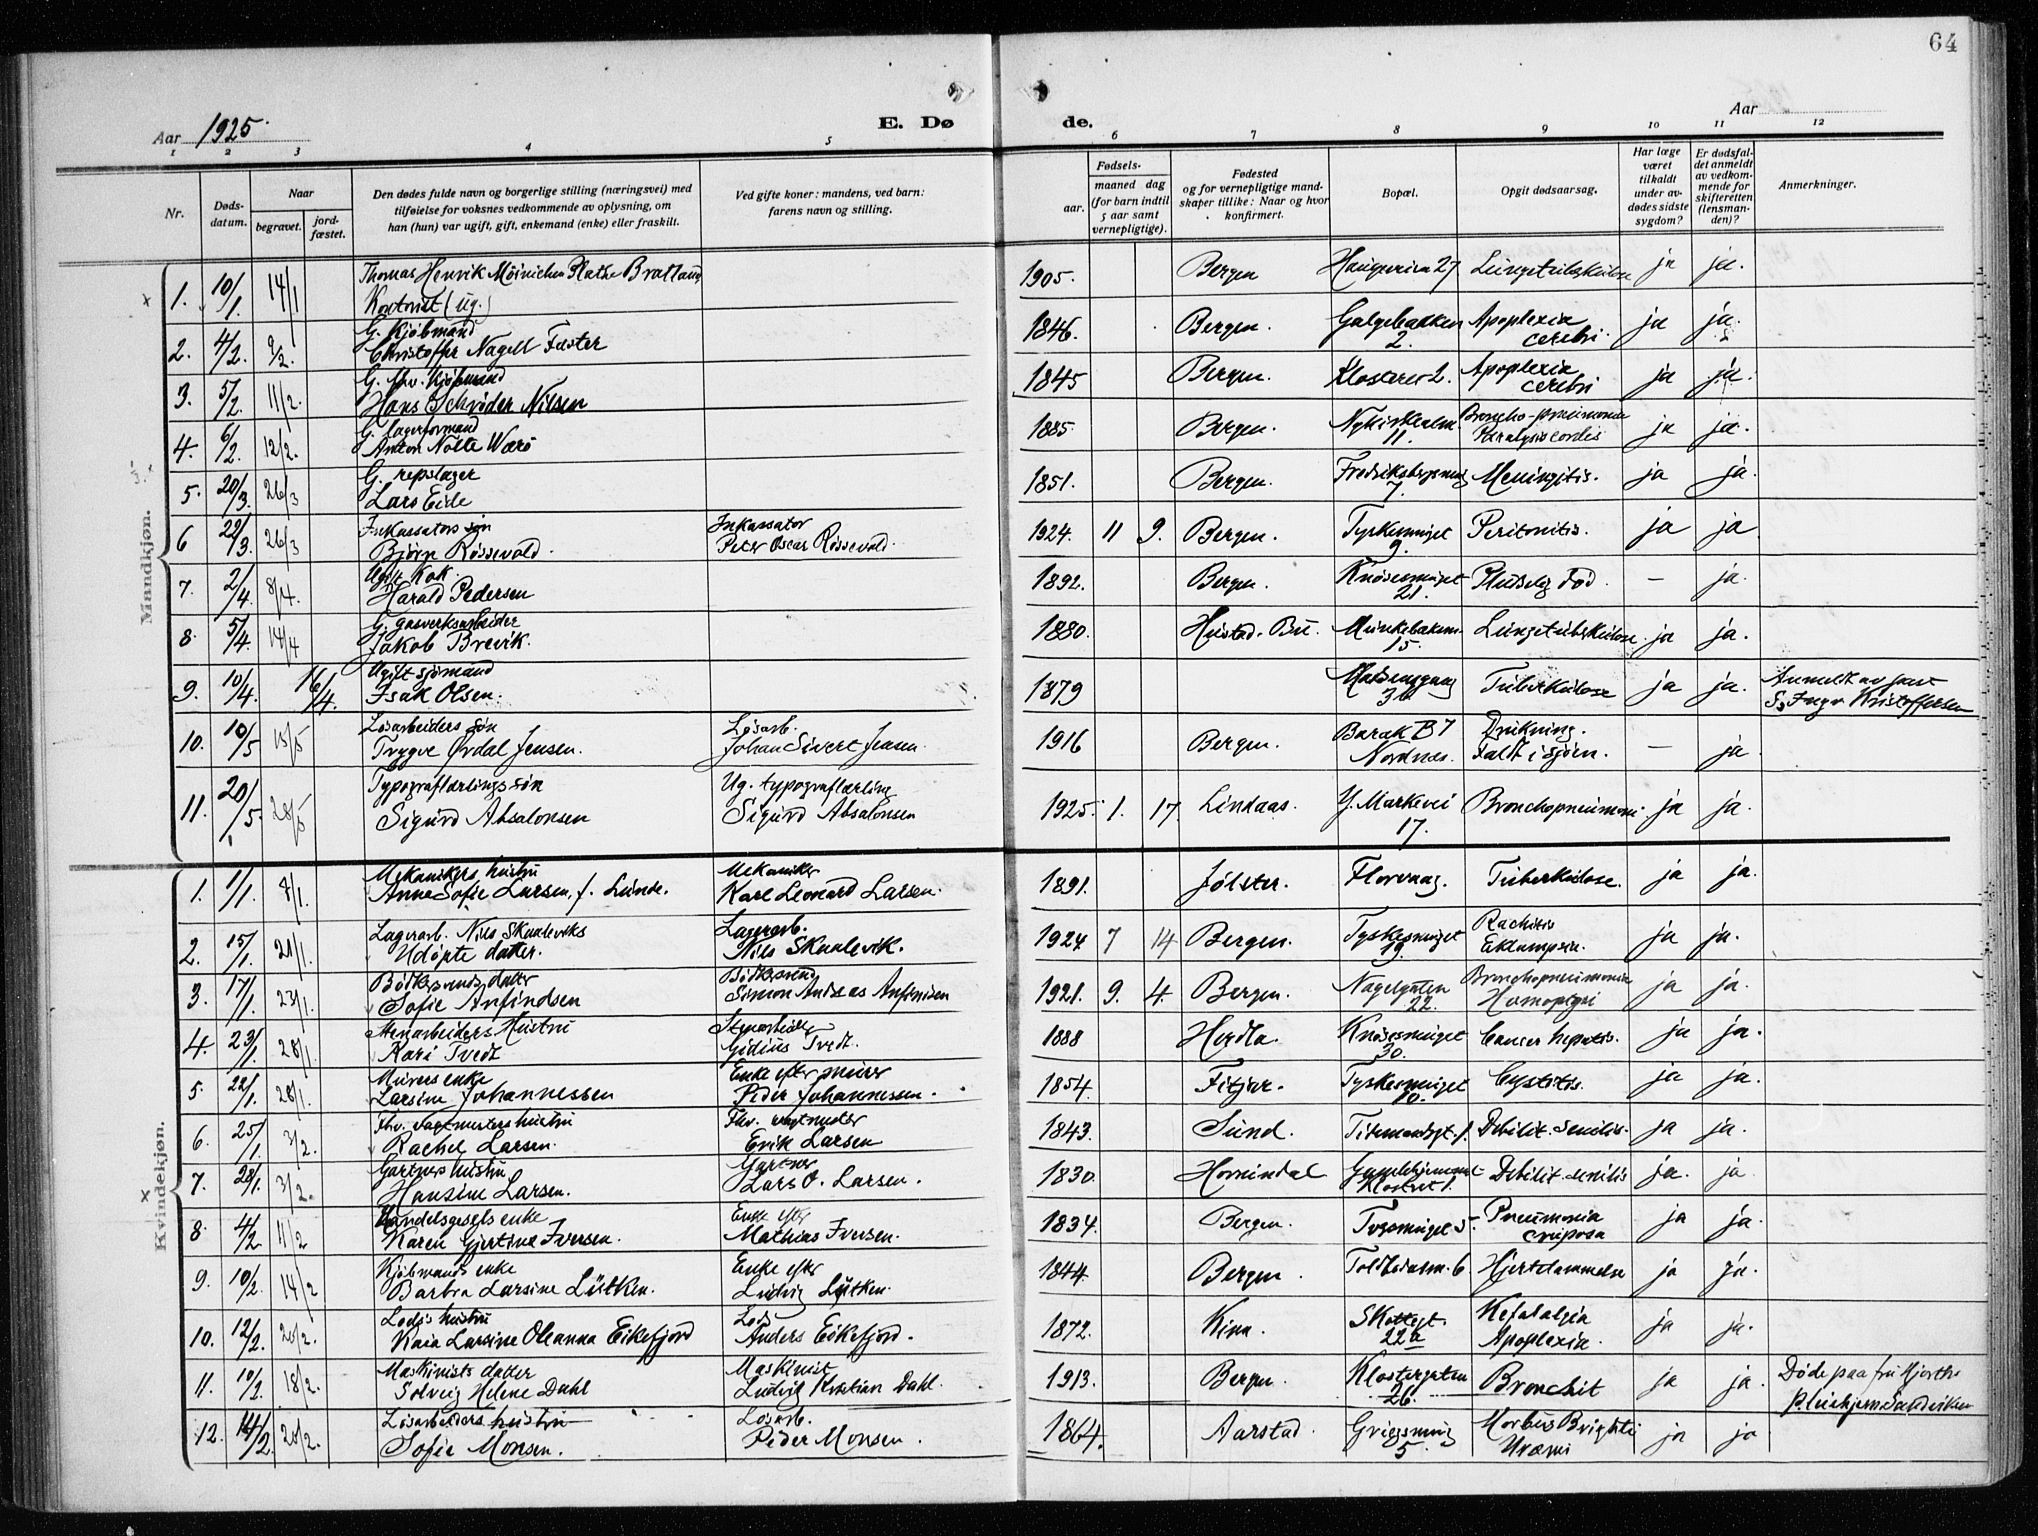 64
Aar 1925.
E. Dø
de.
Aar
1 2 3 4 5 6 7 8 9 10 11 12
Nr.
Døds-
datum.
Naar
begravet.
jord-
fæstet.
Den dødes fulde navn og borgerlige stilling (næringsvei) med
tilføielse for voksnes vedkommende av oplysning, om
han (hun) var ugift, gift, enkemand (enke) eller fraskilt.
Ved gifte koner: mandens, ved barn:
farens navn og stilling.
Fødsels-
aar.
maaned dag
(for barn indtil
5 aar samt
vernepligtige).
Fødested
og for vernepligtige mand-
skaper tillike: Naar og hvor
konfirmert.
Bopæl.
Opgit dødsaarsag.
Har læge
været
tilkaldt
under av-
dødes sidste
sygdom?
Er dødsfal-
det anmeldt
av vedkom-
mende for
skifteretten
(lensman-
den)?
Anmerkninger.
Mandkjøn.
1. 10/1. 14/1 Thomas Henrik Platou Brattland Kontorist (ug.) 1905. Bergen 27 Lungetuberkulose ja ja.
2. 4/2. 9/2. G. Kjøbmand Christoffer Nagell Faster 1846. Bergen. Galgebakken 2. Apoplexia cerebri. ja ja.
3. 5/2. 11/2. G. fhv. Kjøbmand Hans Schrøder Nilsen 1845 Bergen. Klosteret 2. Apoplexia cerebri ja ja.
4. 6/2. 12/2. G. lagerformand Anton Nolte Werø 1885. Bergen. Nykirkealm. 11. Broncho-pneumonia Paralysis cordis ja ja.
5. 20/3. 26/3 G. repslager Lars Eide 1851. Bergen. Fredriksbergsmug 7. Meningitis. ja ja.
6 22/3. 26/3 Inkassators søn Bjørn Rössevold. Inkassator Peter Oscar Rössevold. 1924. 11 9. Bergen. Tyskesmuget 9. Peritonitis. ja ja
7. 2/4. 8/4. Ugift Kok. Harald Pedersen 1892. Bergen. Knösesmuget 21. Pludselig död. — ja.
8. 5/4. 14/4 G. gasverksarbeider Jakob Brevik. 1880. Hustad. Bu. Munkebakem. 15. Lungetuberkulose. ja ja.
9. 10/4. 16/4. Ugift sjömand Isak Olsen. 1879 36 Tuberkulose ja ja. Anmeldt av past S. Ingv Kristoffersen
10. 10/5 15/5 Løsarbeiders søn Trygve Ørdal Jensen. Løsarb. Johan Sivert Jensen. 1916 Bergen. Barak B7 Nordnes. Drukning. Faldt i sjöen. — ja
11. 20/5. 28/5 Typograflærlings søn Sigurd Absalonsen Ug. typograflærling Sigurd Absalonsen 1925. 1. 17. Lindaas. Y. Markevei 17. Bronchopneumoni. ja ja.
Kvindekjøn.
1. 1/1. 8/1. Mekanikers hustru Anne Sofie Larsen, f. Lunde. Mekaniker Karl Leonard Larsen. 1891. Jølster. Florvaag. Tuberkulose. ja ja.
2. 15/1. 21/1. Lagerarb. Nils Skaaleviks Udöpte datter. Lagerarb. Nils Skaalevik. 1924 7 14 Bergen. Tyskesmuget 19. Rachitis Eklampsia. ja ja.
3. 17/1. 23/1. Bødkersvends datter Sofie Anfindsen Bødkersvend Simon Andreas Anfinsen 1921. 9. 4. Bergen. Nagelgaten 22. Bronchopneumonia Hemoptysi ja ja.
4. 23/1. 28/1. Stenarbeiders Hustru Kari Tvedt Stenarbeider Gidius Tvedt. 1888 Herdla. Knösesmuget 30. Cancer hepatis. ja ja.
5. 22/1. 28/1. Murers enke Larsine Johannessen Enke efter murer Peder Johannessen. 1854. Fitjar. Tyskesmuget 10. Cystitis. ja ja.
6. 25/1. 3/2. Fhv. vagtmesters hustru Rachel Larsen. Fhv. vagtmester Erik Larsen 1843. Sund. Debilit. senilis. ja ja.
7. 28/1. 3/2. Gartners hustru Hansine Larsen. Gartner Lars O. Larsen. 1830. Hornindal Gamlehjemmet Klostret 1. Debilit. senilis ja. ja
8. 4/2. 11/2 Handelsgesels enke Karen Gjertine Iversen. Enke efter Mathias Iversen. 1834. Bergen. 5. Pneumonia cruposa ja ja.
9. 10/2. 14/2 Kjøbmands enke Barbra Larsine Lütken. Enke efter Ludvig Lütken. 1844 Bergen. Toldbodalm. 6 Hjertelammelse ja ja.
10. 12/2. 20/2. Lods hustru Kaia Larsine Oleanna Eikefjord Lods Anders Eikefjord. 1872. Kinn. Skottegt. 22a Kefalalgia Apoplexia. ja ja.
11. 10/2. 18/2. Maskinists datter Solveig Helene Dahl Maskinist Ludvig Kristian Dahl. 1913. Bergen Klostergaten 26. Bronchit ja ja. Døde paa fru Hjorths Pleiehjem Sandviken
12. 14/2. 20/2. Løsarbeiders hustru Sofie Monsen. Løsarb. Peder Monsen. 1864. Aarstad. Griegsmug 5. Morbus Brighti Uræmi ja ja